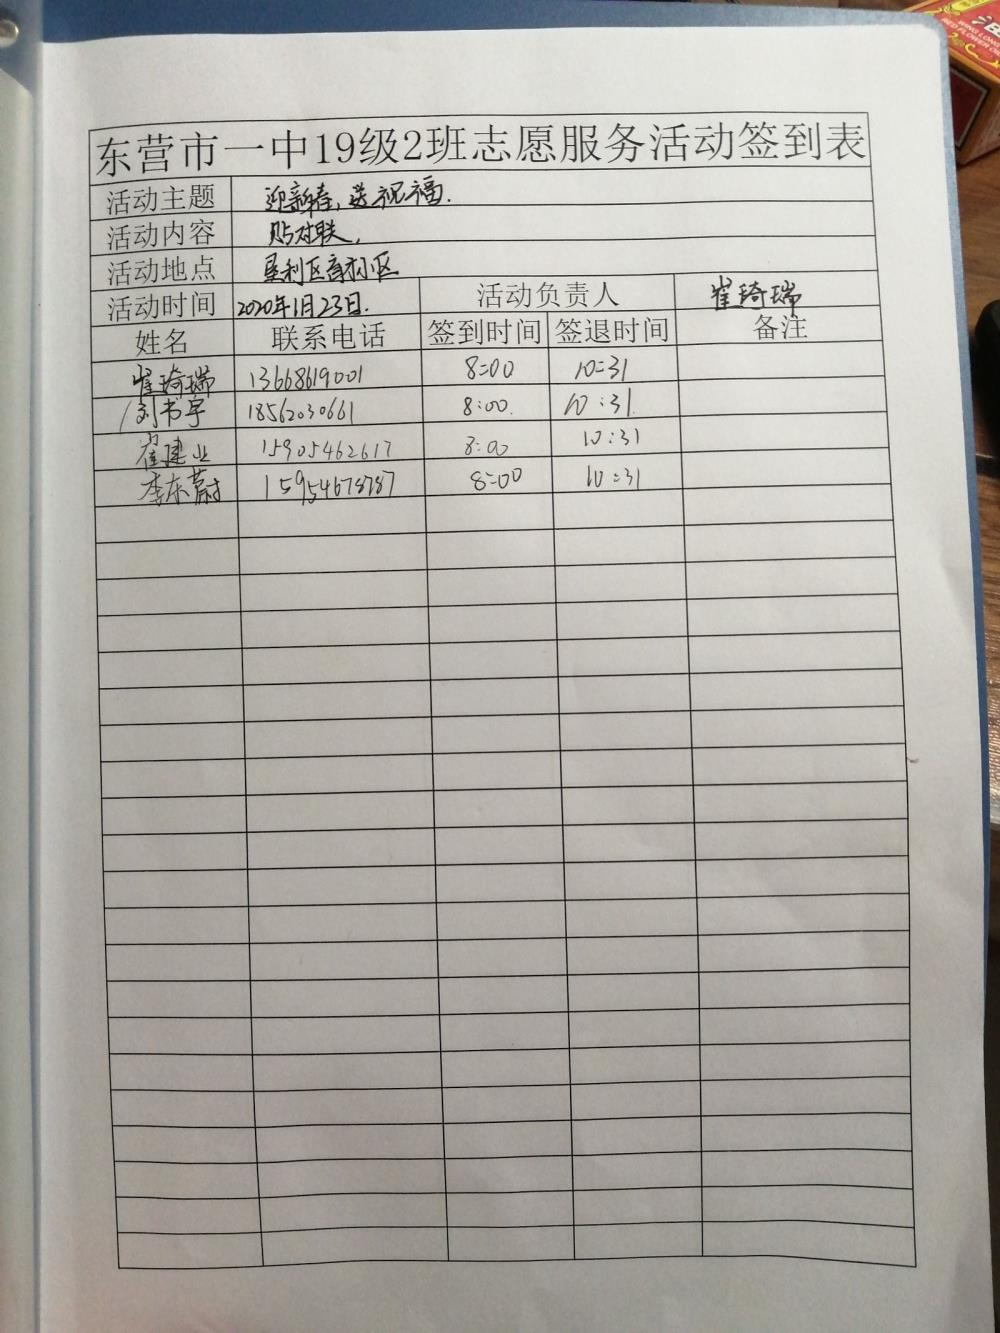 东营市一中19级2班志愿服务活动签到表
活动主题 迎新春,送祝福.
活动内容 贴对联,
活动地点 垦利区育才小区
活动时间 2020年1月23日. 活动负责人 崔琦瑞
姓名 联系电话 签到时间 签退时间 备注
崔琦瑞 13668619001 8:00 10:31
刘书宇 18562030661 8:00. 10:31.
崔建业 15905462617 8:00 10:31
李东蔚 15954678787 8:00 10:31
RED FLOWER